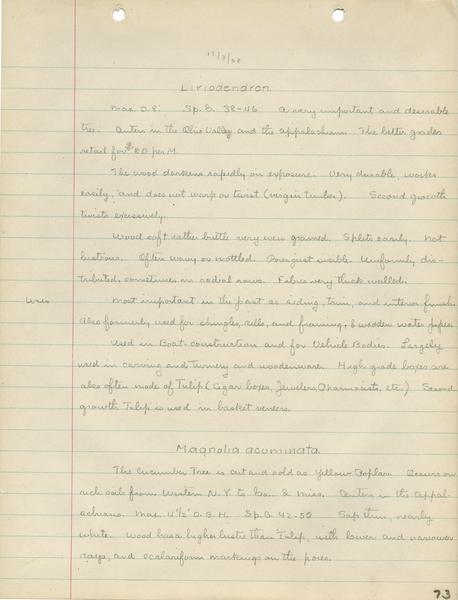 12/3/28
Liriodendron
Max. D 8'. Sp.G. 38-46 A very important and desirable
tree. Centers in the Ohio Valley and the Appalachians. The better grades
retail for $80 per M.
The wood darkens rapidly on exposure. Very durable, works
easily, and does not warp or twist (virgin timber). Second growth
twists excessively.
Wood soft rather brittle very even grained. Splits easily. Not
lustrous. Often wavy or mottled. Pores just visible. Uniformly dis-
tributed, sometimes in radial rows. Fibres very thick walled.
Uses
Most important in the past as siding, trim, and interior finish.
Also formerly used for shingles, sills, and framing, & wooden water pipes
Used in Boat construction and for Vehicle Bodies. Largely
used in carving and turnery and woodenware. High grade boxes are
also often made of Tulip (Cigar boxes, Jewelers, Pharmacists, etc.) Second
growth Tulip is used in basket veneers.
Magnolia acuminata
The Cucumber Tree is cut and sold as Yellow Poplar. Occurs on
rich soils from Western N.Y. to Ga. & Miss. Centers in the Appal-
achians. Max. 4½' D.B.H. Sp.G. 42-50 Sap thin, nearly
white. Wood has a higher lustre than Tulip, with lower and narrower
rays, and scalariform markings on the pores.
73